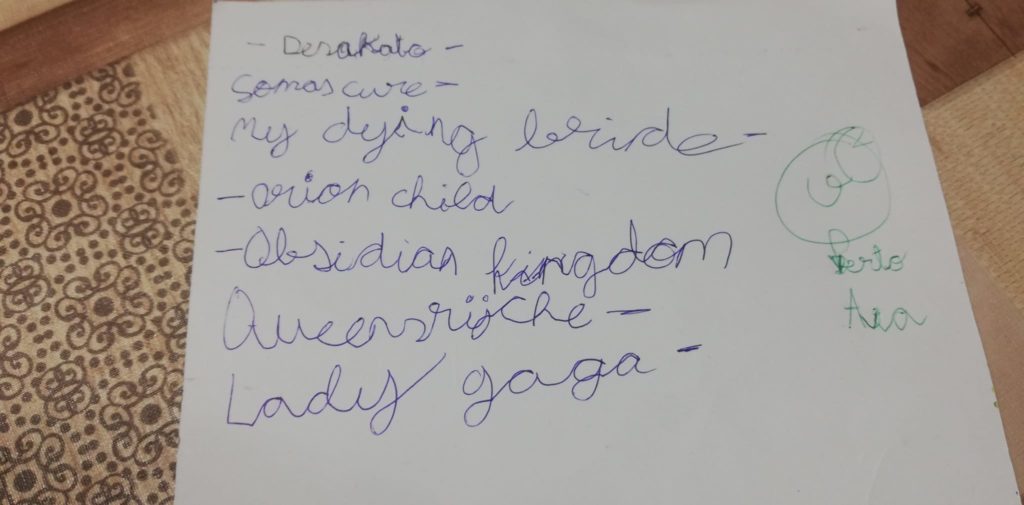 - Desakato -
Somas cure -
My dying bride -
- orion child
- Obsidian kingdom
Queensrijche -
Lady gaga -